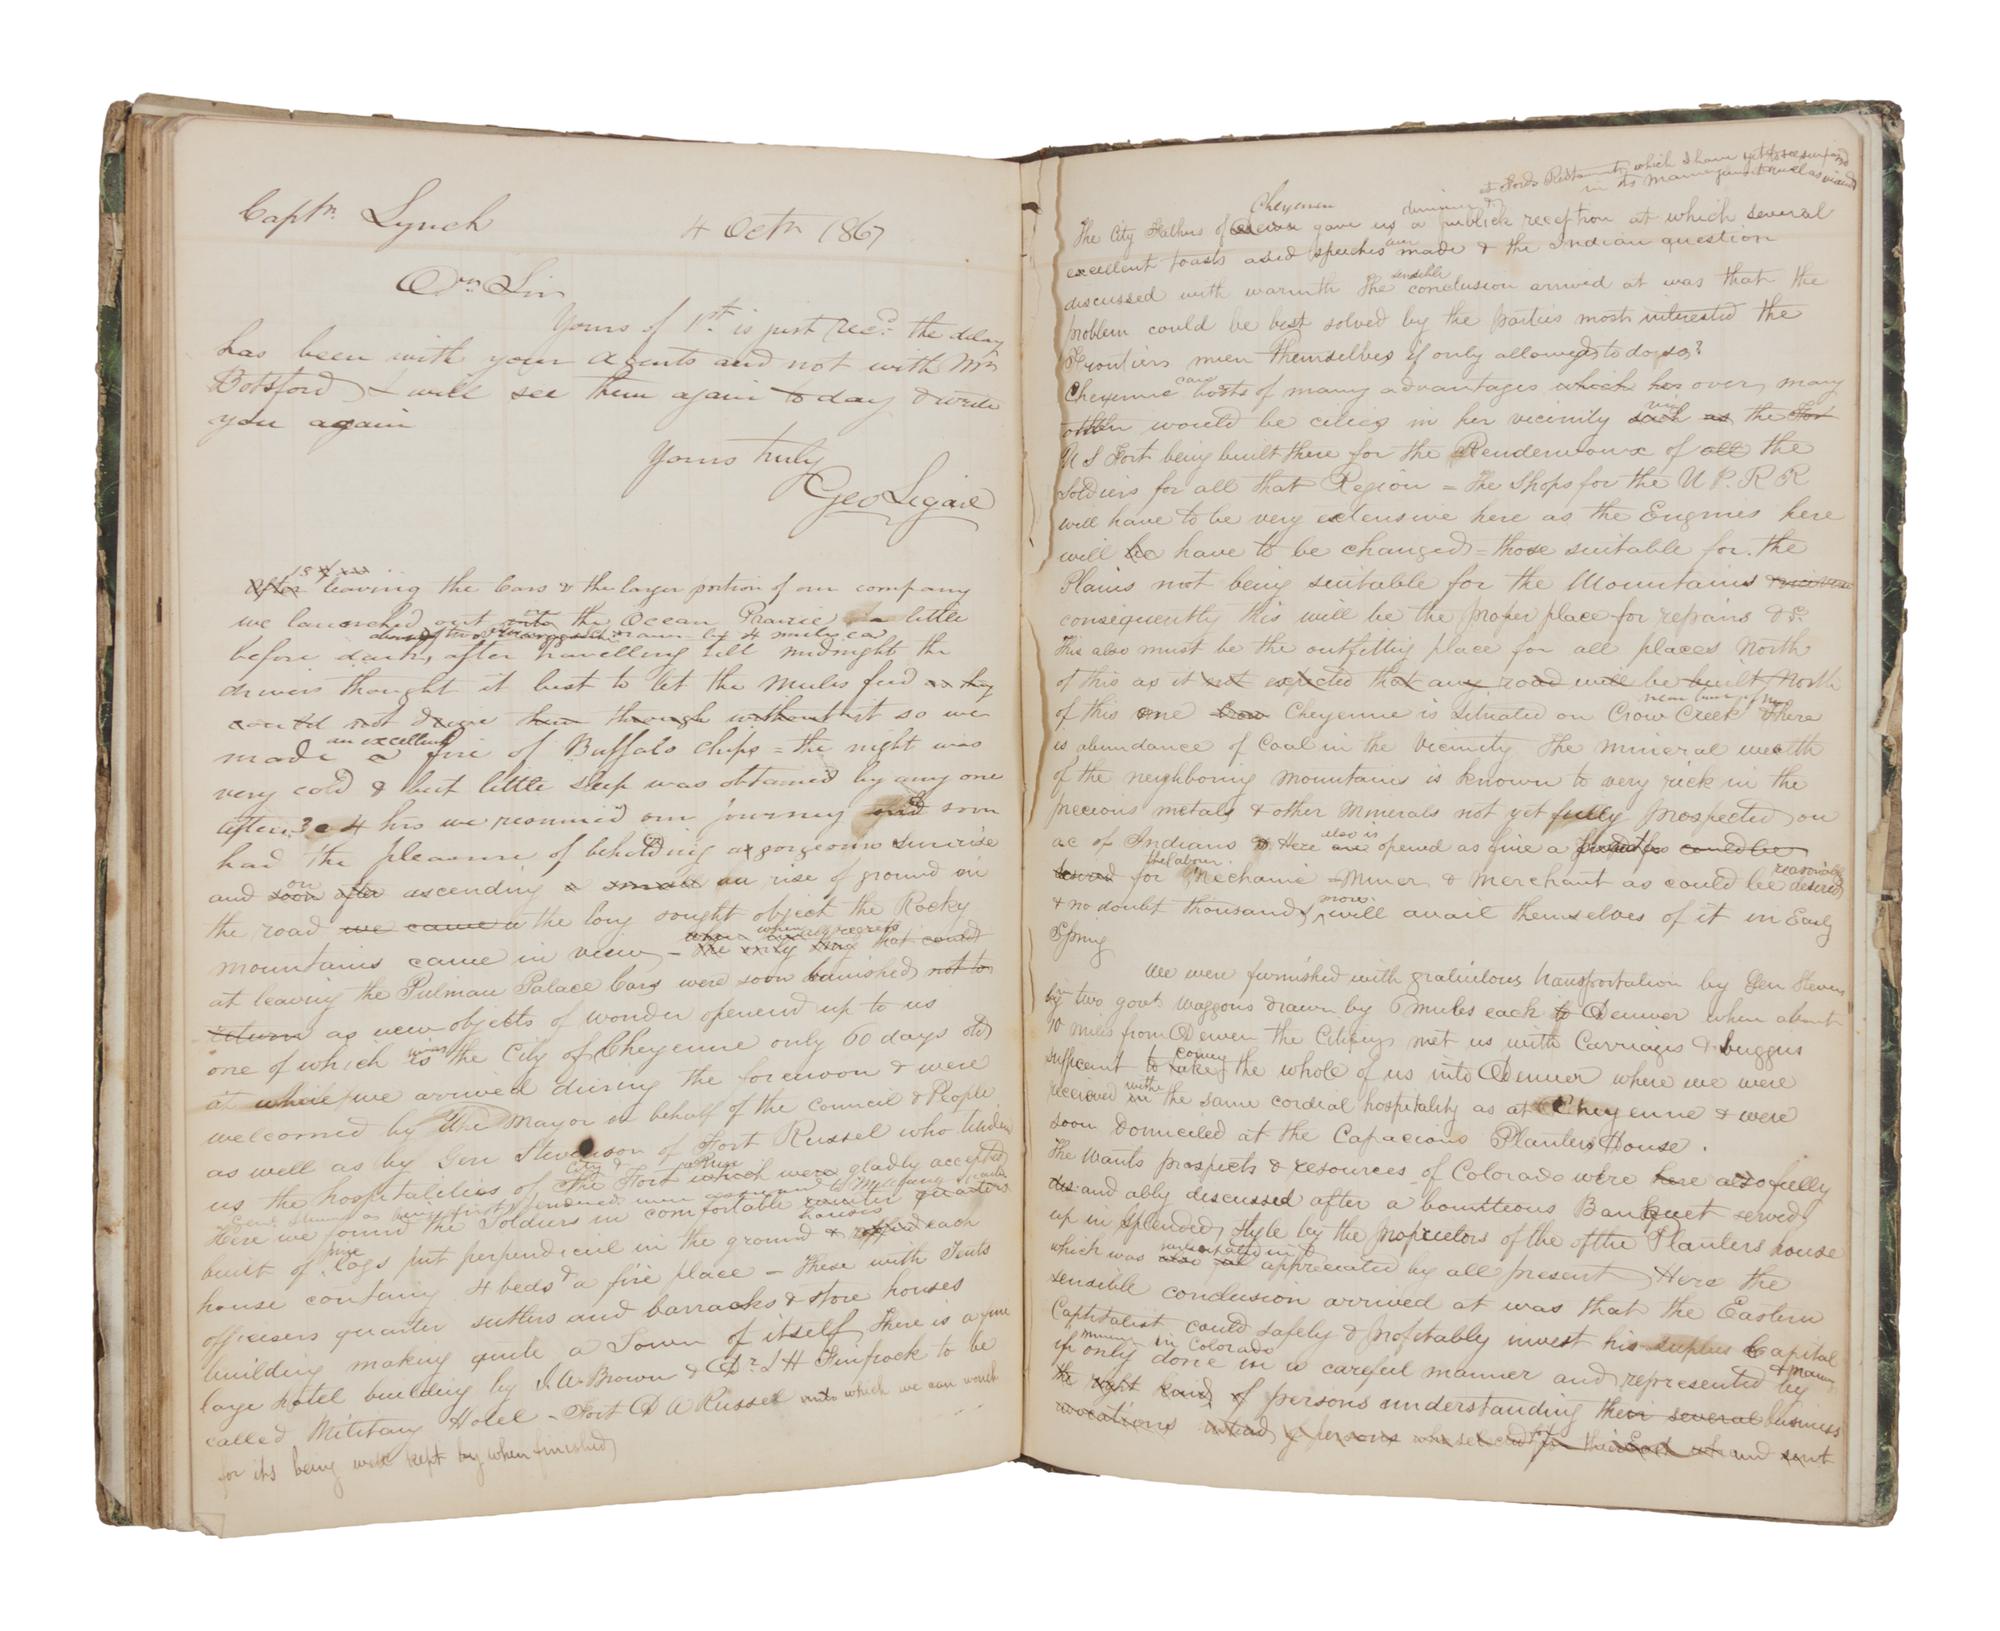 Captn. Lynch
4 Octr 1867
Dr Sir
Yours of 1st. is just Recd. the delay
has been with your agents and not with Mr
Botsford I will see them again to day & write
you again
Yours truly
Geo Legare
After leaving the Cars & the larger portion of our company
we launched out on the Ocean Prairie a little
drawn by 4 mules ea
before dark, after travelling till midnight the
drivers thought it best to let the mules feed as they
could not drive them through without it so we
an excellent
made a fire of Buffalo chips = the night was
very cold & but little sleep was obtained by any one
after 3 or 4 hrs we resumed our journey and soon
had the pleasure of beholding a gorgeous sunrise
and soon after on ascending a small an rise of ground in
the road we came the long sought object the Rocky
mountains came in view - the only that could
when our regrets
at leaving the Pulman Palace Cars were soon banished not to
return as new objects of wonder opened up to us
one of which was the City of Cheyenne only 60 days old
at which we arrived during the forenoon & were
welcomed by the Mayor on behalf of the Council & People
as well as by Gen Stevenson of Fort Russel who tendered
City &
us the hospitalities of the Fort which were gladly accepted
Here we found the Soldiers in comfortable quarters
houses
pine
built of logs put perpendicul in the ground & each
house containg 4 beds & a fire place - These with Tents
officers quarter sutlers and barracks & store houses
building making quite a Town of itself, There is a fine
large hotel building by J. W. Brown & Dr. J H Finfrock to be
called Military Hotel - Fort D A Russel which we can vouch
for its being well kept by when finished
at Fords Restaurant, which I have yet to see surpassed
in its management as well as viands
Cheyenne
dinner &
The City Fathers of Denver gave us a publick reception at which several
excellent toasts and speeches were made & the Indian question
sensible
discussed with warmth The conclusion arrived at was that the
problem could be best solved by the parties most interested the
Frontiers men themselves if only allowed to do so?
can
Cheyenne boasts of many advantages which her over many
viz
other would be cities in her vicinity such as the Fort
U S Fort being built there for the Rendezvous of all the
Soldiers for all that Region = The Shops for the U P. R R
will have to be very extensive here as the Engines here
will be have to be changed = those suitable for the
Plains not being suitable for the Mountains
consequently this will be the proper place for repairs &c.
This also must be the outfitting place for all places North
of this as it not expected that any road will be built North
of this one Cheyenne is situated on Crow Creek There
is abundance of Coal in the Vicinity The mineral wealth
of the neighboring mountains is known to very rich in the
precious metals & other Minerals not yet fully prospected on
also is
ac of Indians Here are opened as fine a could be
the labour
reasonably
for Mechanic = Miner & Merchant as could be desired
more
& no doubt thousands will avail themselves of it in Early
Spring
We were furnished with gratuitous transportation by Gen Stevens
in two govt waggons drawn by 6 mules each to Denver when about
10 miles from Denver the Citizens met us with Carriages & buggies
convey
sufficient to take the whole of us into Denver where we were
with
received in the same cordial hospitality as at Cheyenne & were
soon domiciled at the Capacious Planters House.
The Wants prospects & resources of Colorado were here also fully
and ably discussed after a bounteous Banquet served
up in splended style by the proprietors of the of the Planters house
participated in &
which was appreciated by all present Here the
sensible conclusion arrived at was that the Eastern
Capitalist could safely & profitably invest his suplus Capital
in Colorado
if only done in a careful manner and represented by
the right kind of persons understanding their several business
avocations instead of persons and sent